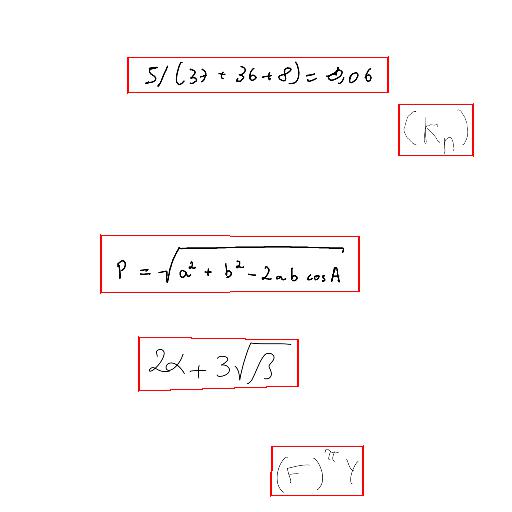 5/(37+36+8)=0,06
(K_n)
P = √(a² + b² - 2ab cos A)
2α + 3√β
(F)^π Y